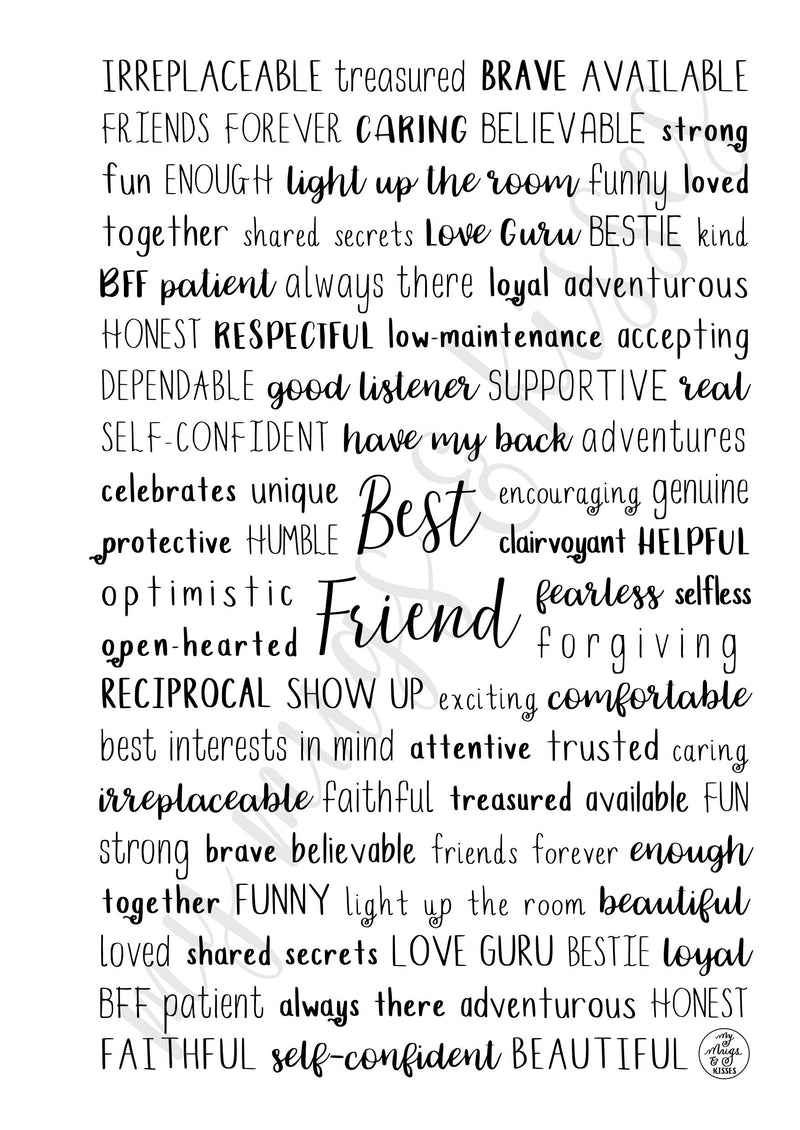 IRREPLACEABLE treasured BRAVE AVAILABLE
FRIENDS FOREVER CARING BELIEVABLE strong
fun ENOUGH light up the room funny loved
together shared secrets Love Guru BESTIE kind
BFF patient always there loyal adventurous
HONEST RESPECTFUL low-maintenance accepting
DEPENDABLE good listener SUPPORTIVE real
SELF-CONFIDENT have my back adventures
celebrates unique encouraging genuine
Best
protective HUMBLE clairvoyant HELPFUL
optimistic fearless selfless
Friend
open-hearted forgiving
RECIPROCAL SHOW UP exciting comfortable
best interests in mind attentive trusted caring
irreplaceable faithful treasured available FUN
strong brave believable friends forever enough
together FUNNY light up the room beautiful
loved shared secrets LOVE GURU BESTIE loyal
BFF patient always there adventurous HONEST
FAITHFUL self-confident BEAUTIFUL
my
Mugs
&
KISSES
my mugs & kisses